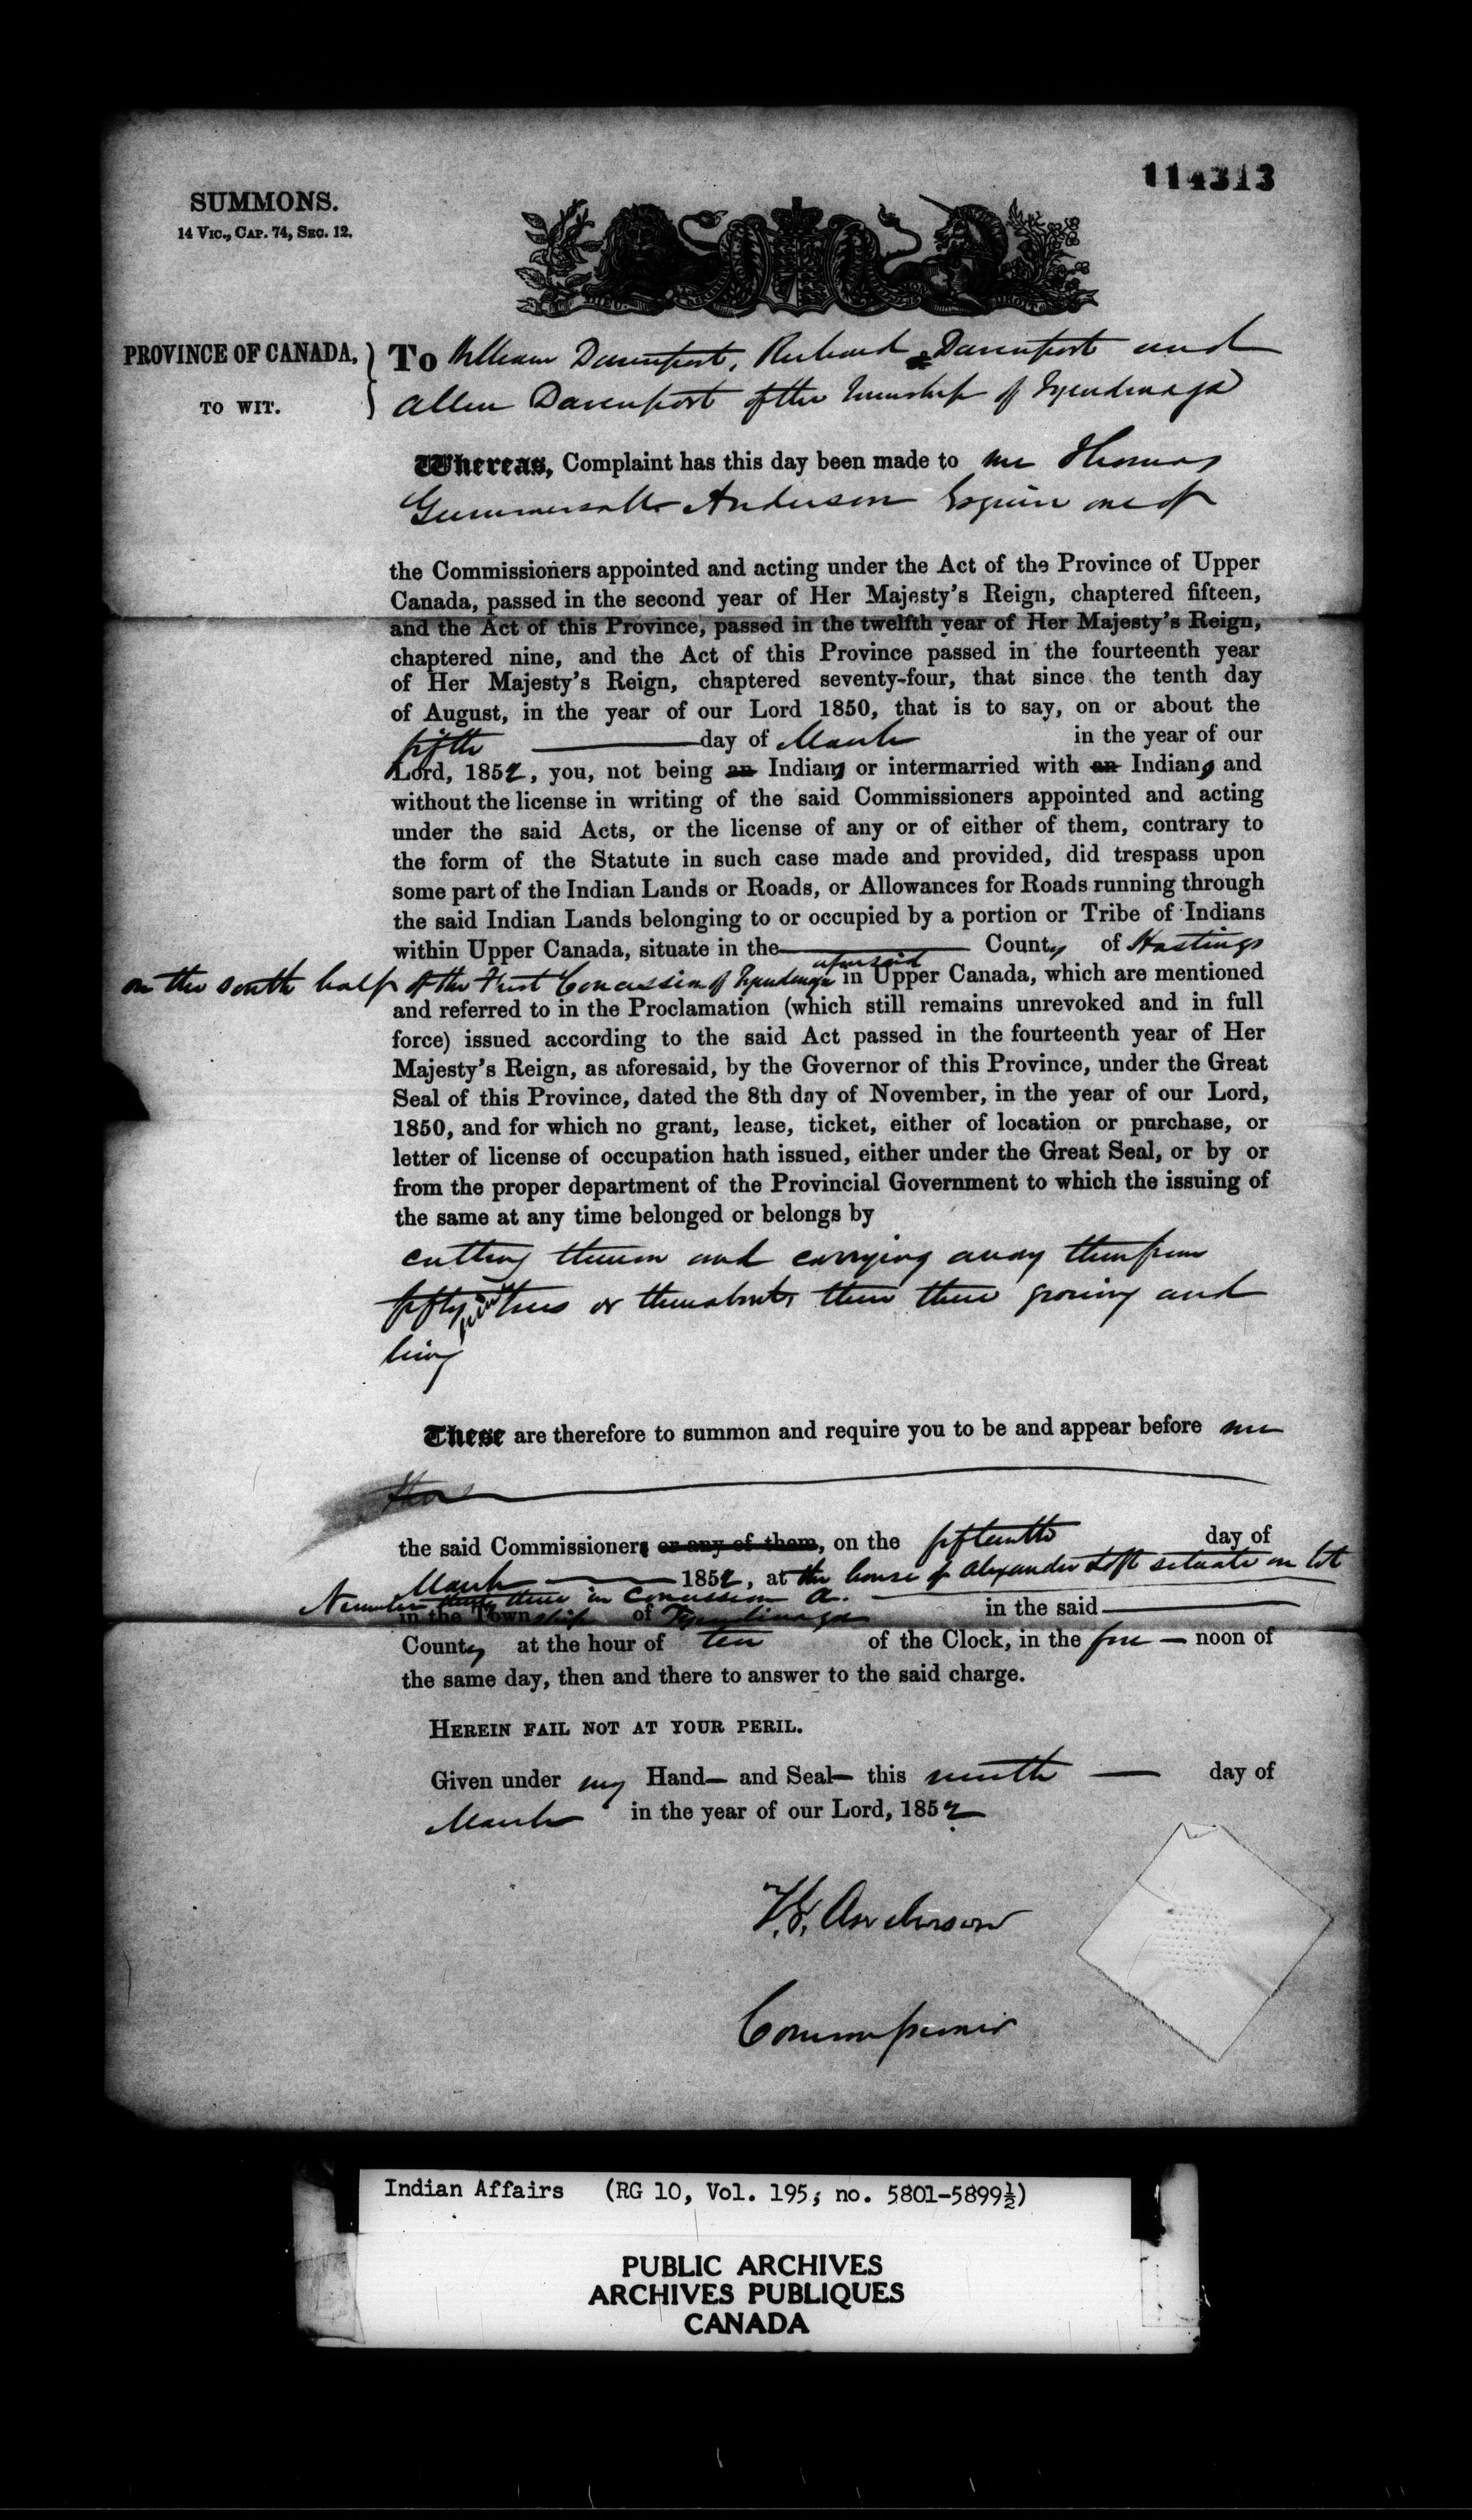 114313
SUMMONS.
14 Vic., Cap. 74, Sec. 12.
PROVINCE OF CANADA,
TO WIT.
To William Davenport, Richard Davenport and
Allen Davenport of the Township of Tyendinaga
Whereas, Complaint has this day been made to me Thomas
Gummersall Anderson Esquire one of
the Commissioners appointed and acting under the Act of the Province of Upper
Canada, passed in the second year of Her Majesty's Reign, chaptered fifteen,
and the Act of this Province, passed in the twelfth year of Her Majesty's Reign,
chaptered nine, and the Act of this Province passed in the fourteenth year
of Her Majesty's Reign, chaptered seventy-four, that since the tenth day
of August, in the year of our Lord 1850, that is to say, on or about the
fifth day of March in the year of our
Lord, 1852, you, not being an Indians or intermarried with an Indians and
without the license in writing of the said Commissioners appointed and acting
under the said Acts, or the license of any or of either of them, contrary to
the form of the Statute in such case made and provided, did trespass upon
some part of the Indian Lands or Roads, or Allowances for Roads running through
the said Indian Lands belonging to or occupied by a portion or Tribe of Indians
within Upper Canada, situate in the County of Hastings
on the south half of the First Concession of Tyendinaga aforesaid in Upper Canada, which are mentioned
and referred to in the Proclamation (which still remains unrevoked and in full
force) issued according to the said Act passed in the fourteenth year of Her
Majesty's Reign, as aforesaid, by the Governor of this Province, under the Great
Seal of this Province, dated the 8th day of November, in the year of our Lord,
1850, and for which no grant, lease, ticket, either of location or purchase, or
letter of license of occupation hath issued, either under the Great Seal, or by or
from the proper department of the Provincial Government to which the issuing of
the same at any time belonged or belongs by
cutting thereon and carrying away therefrom
fifty pine trees or thereabouts then there growing and
being
These are therefore to summon and require you to be and appear before me
the said Commissioner or any of them, on the fifteenth day of
March 1852, at the house of Alexander Loft situate on lot
Number thirty three in Concession A.
in the Township of Tyendinaga in the said
County at the hour of ten of the Clock, in the fore noon of
the same day, then and there to answer to the said charge.
HEREIN FAIL NOT AT YOUR PERIL.
Given under my Hand and Seal this ninth day of
March in the year of our Lord, 1852
T.G. Anderson
Commissioner
Indian Affairs (RG 10, Vol. 195, no. 5801-5899½)
PUBLIC ARCHIVES
ARCHIVES PUBLIQUES
CANADA